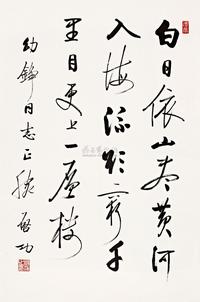 白日依山尽黄河
入海流欲穷千
里目更上一层楼
幼铮同志正腕 启功